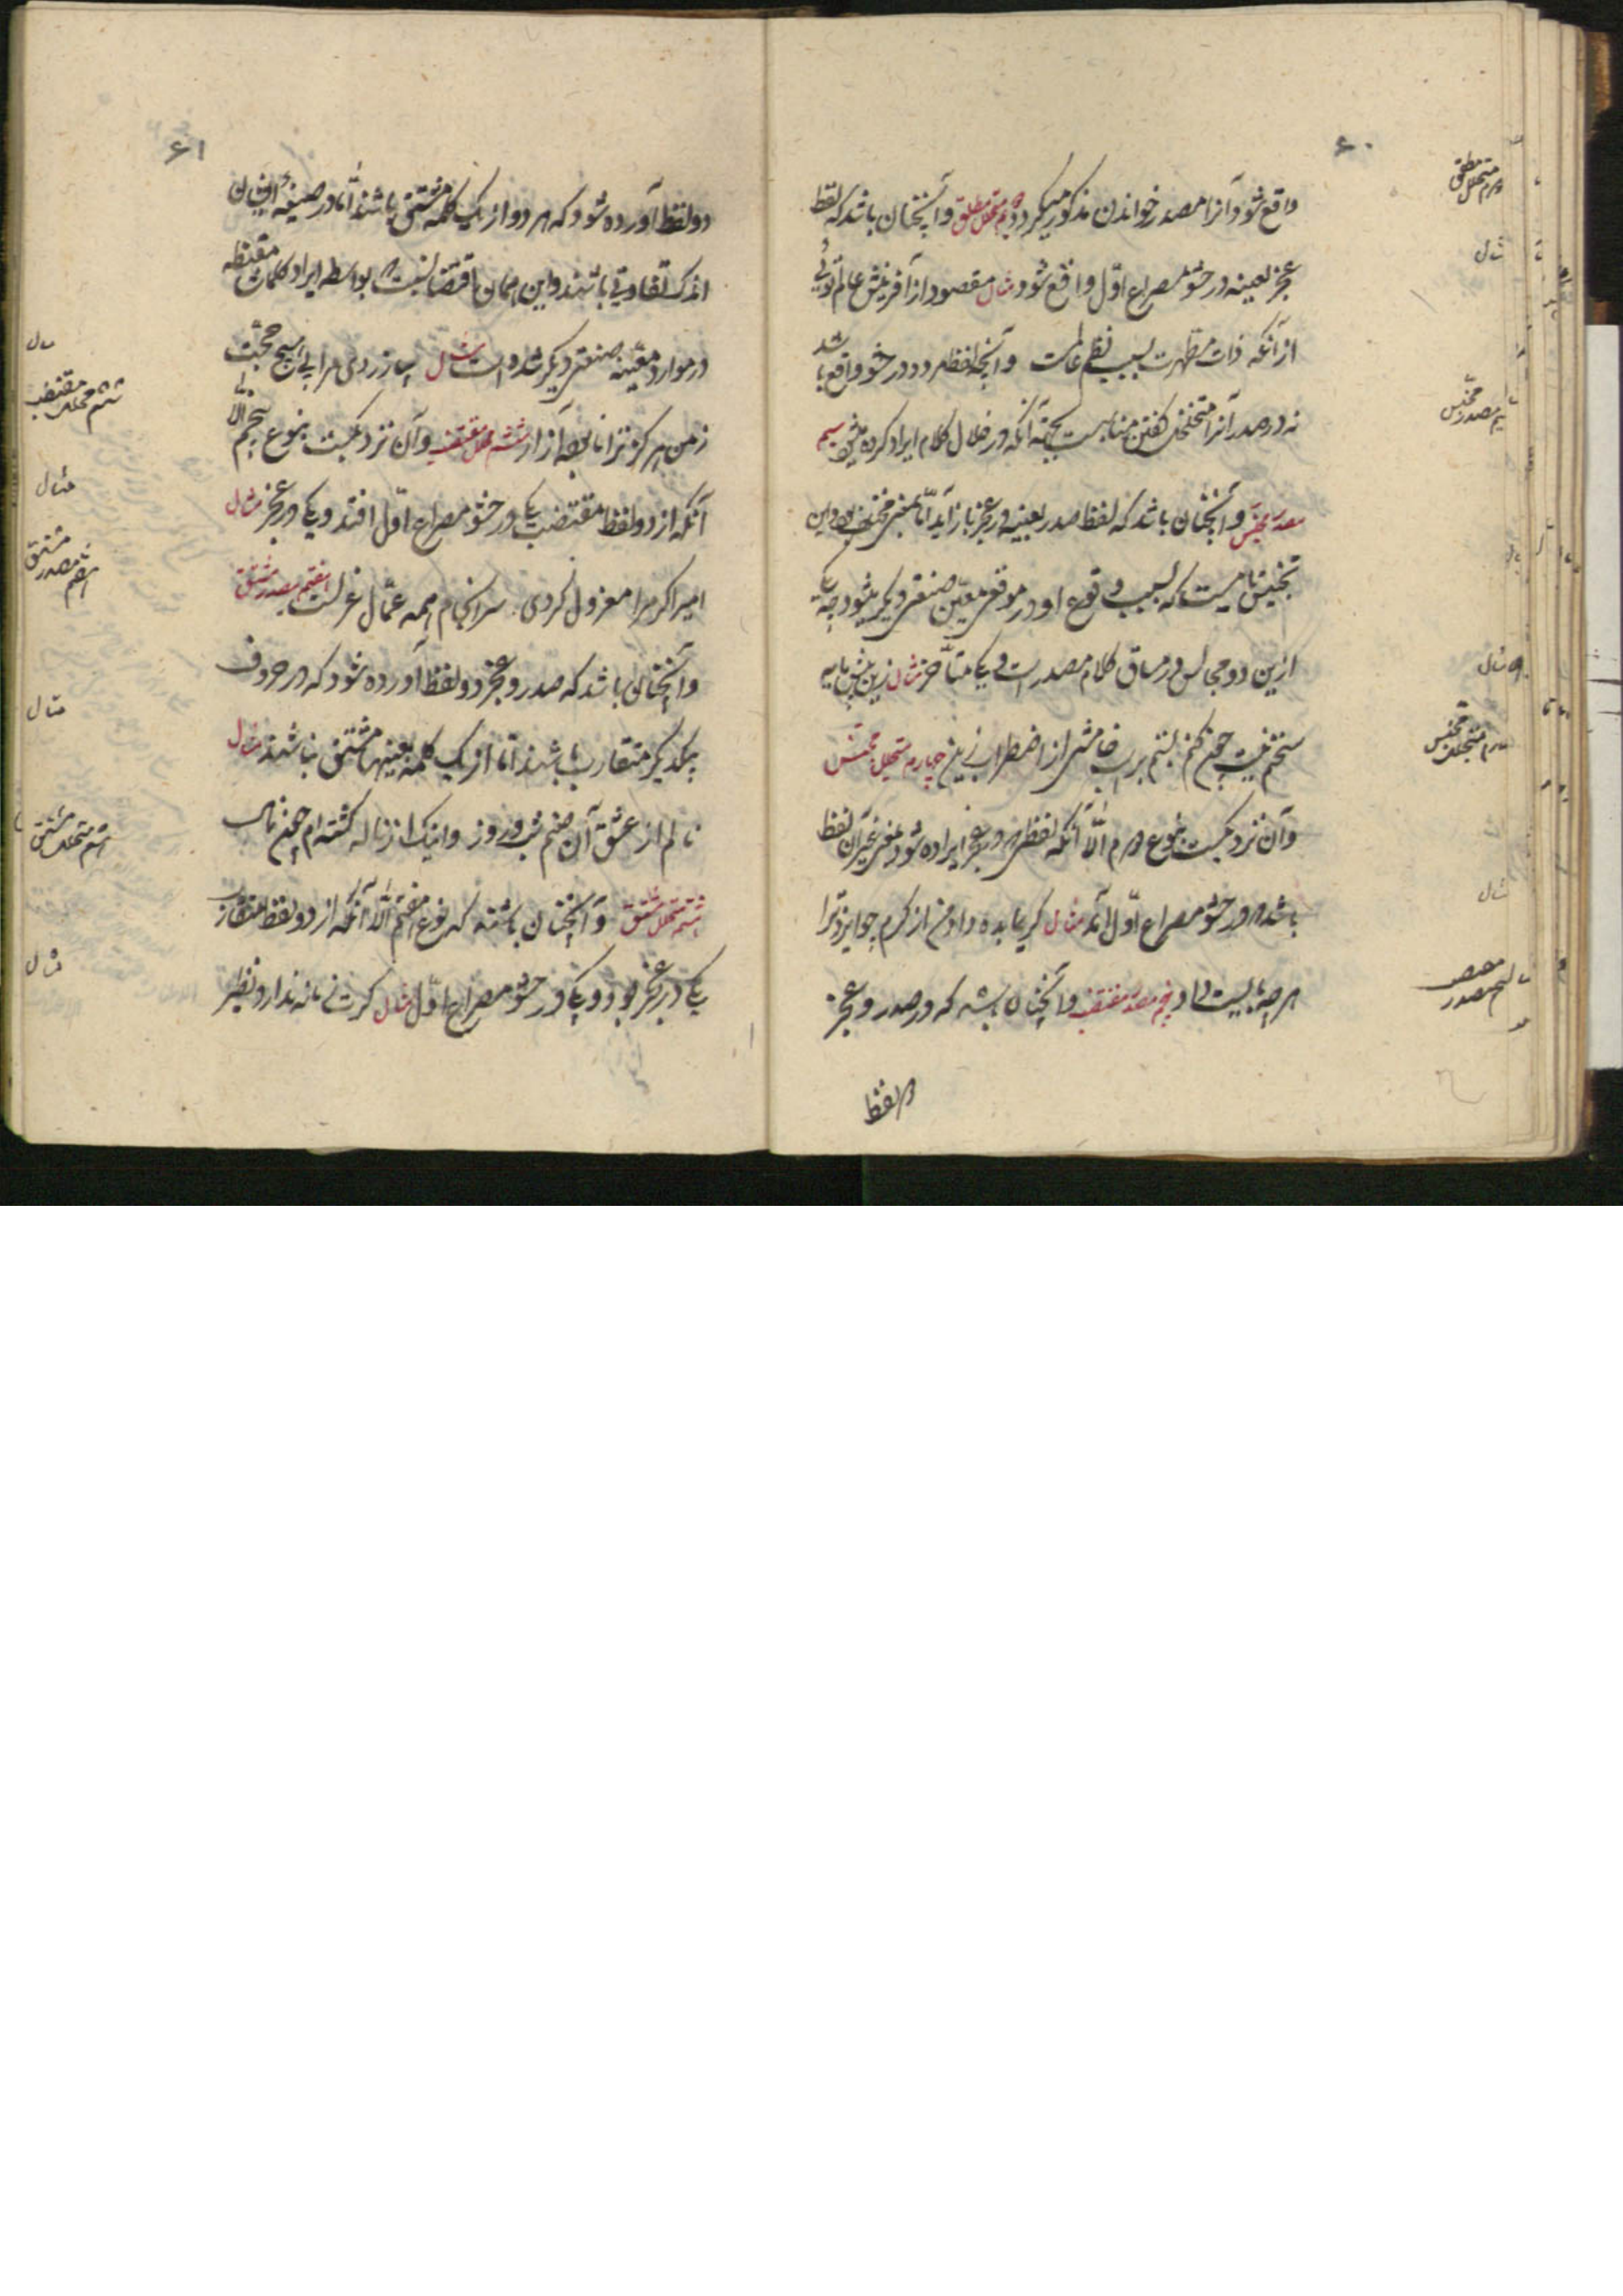 ۶۰
واقع شود آنرا مصدر خواندن مذکور میگردد دوم متخلل مطلق و آنچنان باشد که لفظ
عجز بعینه در حشو مصراع اول واقع شود مثال مقصود از آفرینش عالم توئی
از آنکه ذات مطهرت سبب نظم عالمست و آنچه لفظ در حشو واقع باشد
نه در صدر آنرا متخلل گفتن مناسبست بجهة آنکه در خلال کلام ایراد کرده سیم
مصدر مجنس و آنچنان باشد که لفظ صدر بعینه در عجز باز آید اما بمعنی مختلف بود و این
تجنیس تامیست که بسبب وقوع او در موقعی معین صنعتی دیگر میشود چه یکی
ازین دو مجانس در مساق کلام مصدر است و یکی متاخر مثال زین پیش
سخن نیست چکنم بستم بر لب خامشی از اضطراب زین چهارم متخلل مجنس
و آن نزدیکست بنوع دوم الا آنکه لفظی که در عجز ایراد شود بمعنی غیر آن لفظ
باشد که در حشو مصراع اول آمد مثال کریما بده داد من از کرم چو ایزد ترا
هرچه بایست داد پنجم مصدر مقتضب و آنچنان باشد که در صدر و عجز
دو لفظ
دوم متخلل مطلق
مثال
سیم مصدر مجنس
مثال
چهارم متخلل مجنس
مثال
پنجم مصدر
۶۱
دو لفظ آورده شود که هر دو از یک کلمه مشتق باشند اما در صیغه ایشان
اندک تفاوتی باشند و این همان اقتضابست که بواسطه ایراد کلمات مقتضبه
در موارد معینه صنعتی دیگر شده است مثال بیازردی مرا بی هیچ حجت
ز من هرگز ترا نابوده آزار ششم متخلل مقتضب و آن نزدیکست بنوع پنجم الا
آنکه از دو لفظ مقتضب یکی در حشو مصراع اول افتد و یکی در عجز مثال
امیرا گر مرا معزول کردی سرانجام همه عمال عزلست هفتم مصدر مشتق
و آنچنان باشد که صدر و عجز دو لفظ آورده شود که در حروف
بیکدیگر متقارب باشند اما از یک کلمه بعینها مشتق نباشند مثال
نالم از عشق آن صنم شب و روز و اینک از ناله گشته ام چون نال
هشتم متخلل مشتق و آنچنان باشد که نوع هفتم الا آنکه از دو لفظ متقارب
یکی در عجز بود و یکی در حشو مصراع اول مثال گرت زمانه ندارد نظیر
مثال
ششم متخلل مقتضب
مثال
هفتم مصدر مشتق
مثال
هشتم متخلل مشتق
مثال